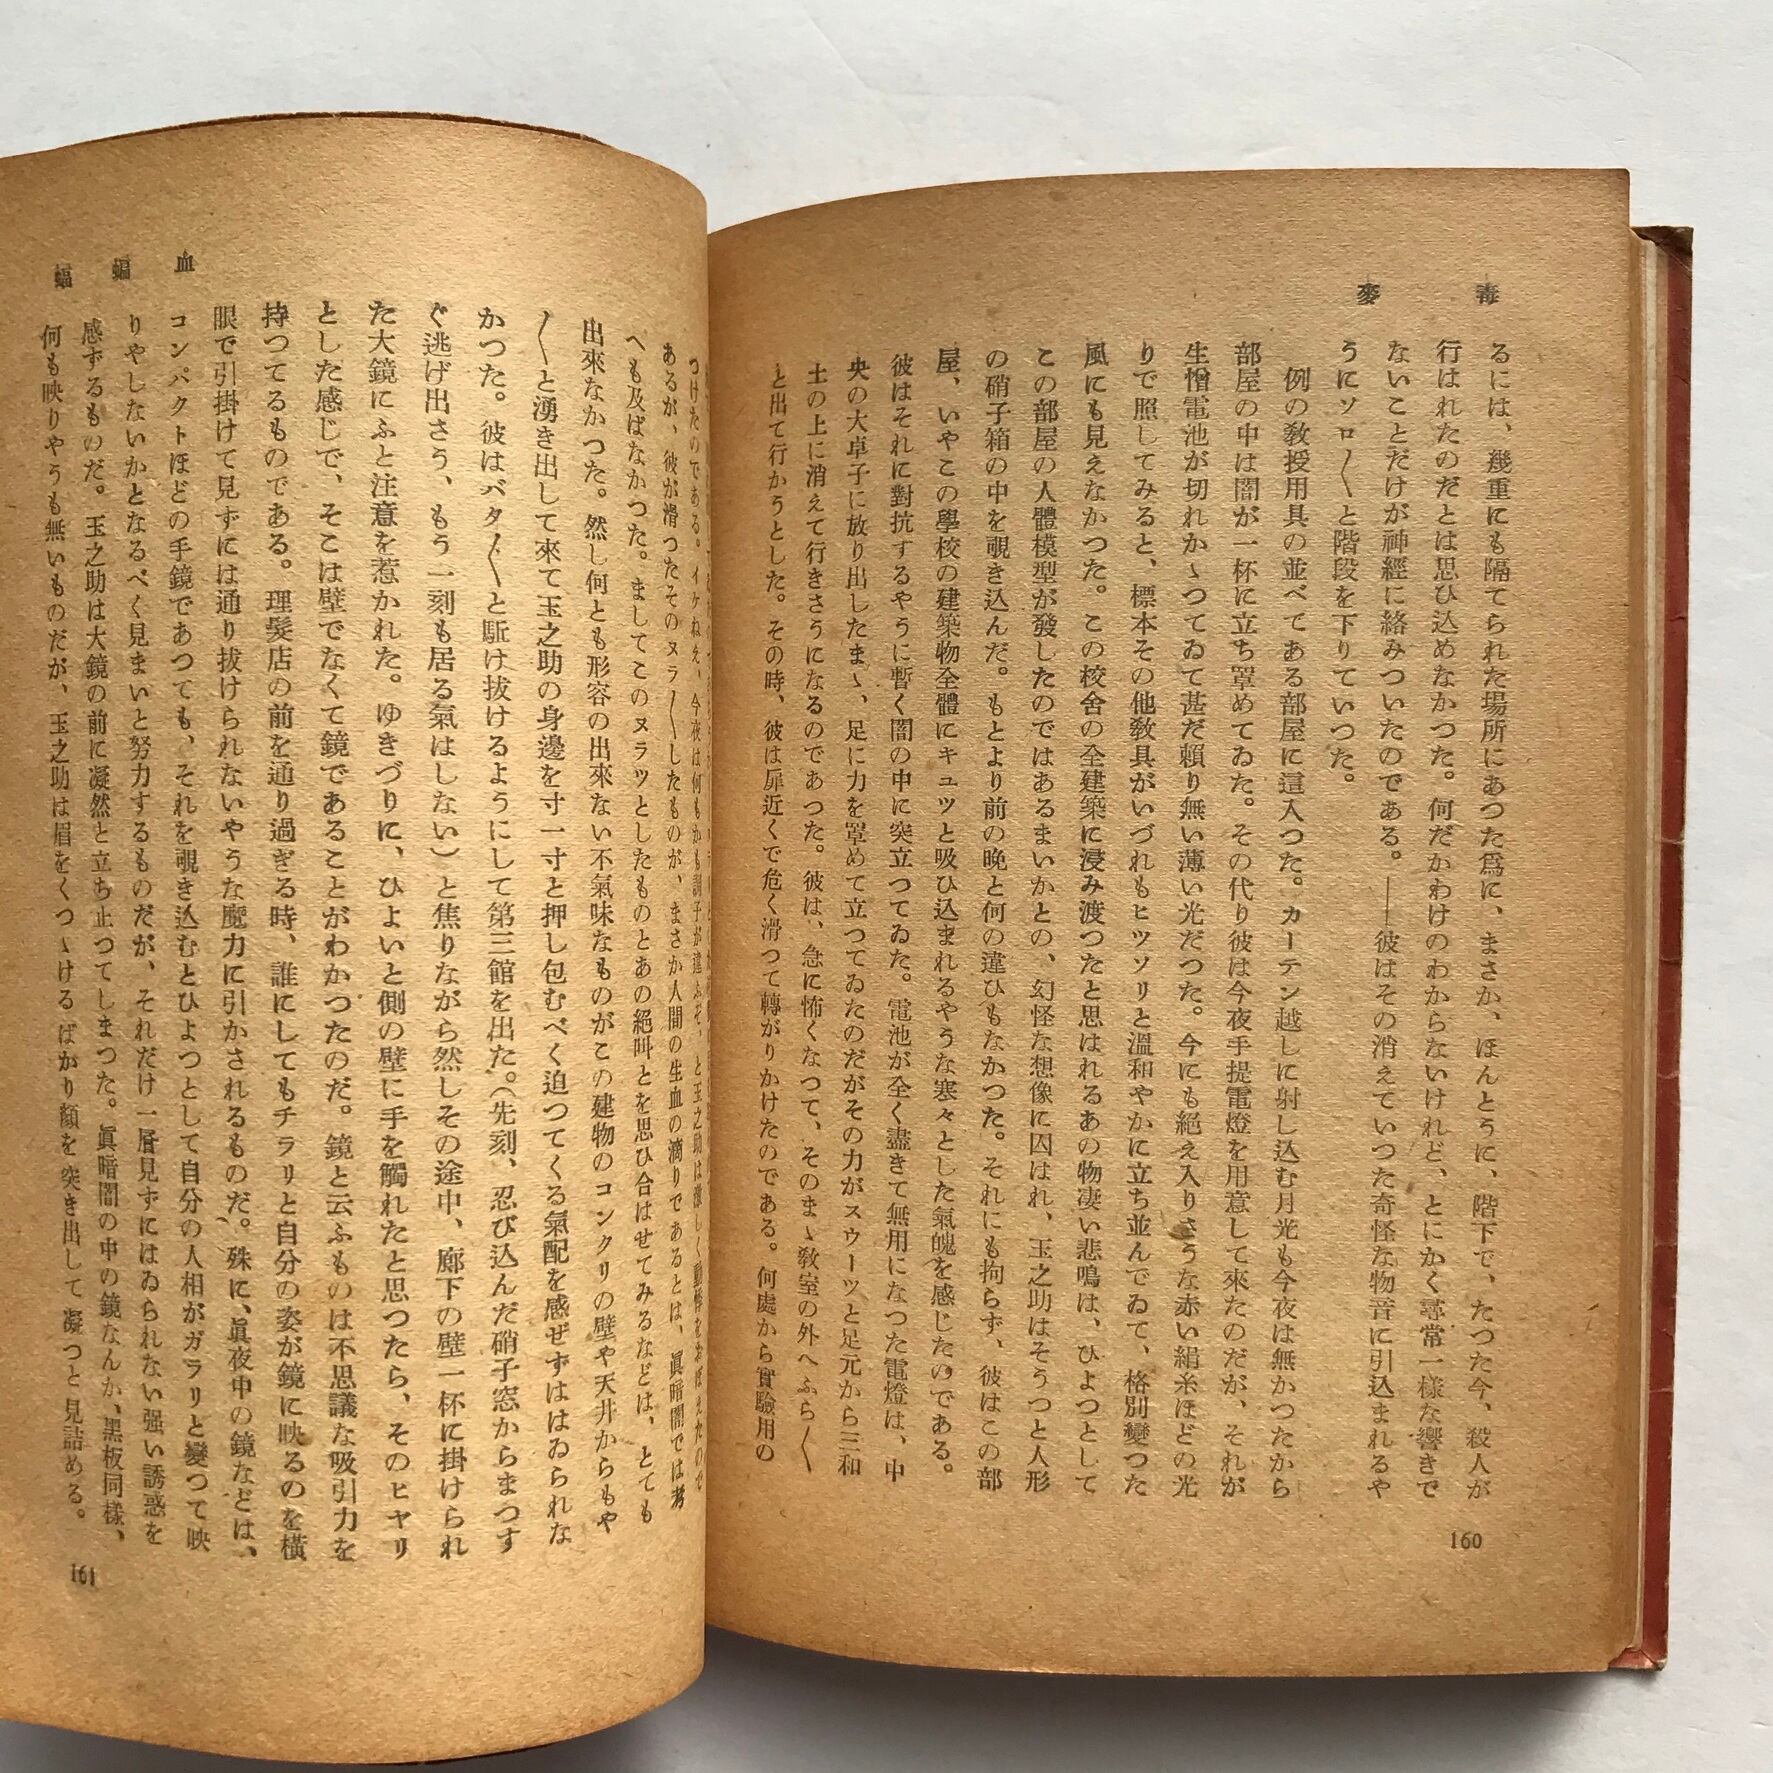 毒麥
るには、幾重にも隔てられた場所にあつた爲に、まさか、ほんとうに、階下で、たつた今、殺人が
行はれたのだとは思ひ込めなかつた。何だかわけのわからないけれど、とにかく尋常一樣な響きで
ないことだけが神經に絡みついたのである。――彼はその消えていつた奇怪な物音に引込まれるや
うにソロ〱と階段を下りていつた。
例の敎授用具の並べてある部屋に這入つた。カーテン越しに射し込む月光も今夜は無かつたから
部屋の中は闇が一杯に立ち罩めてゐた。その代り彼は今夜手提電燈を用意して來たのだが、それが
生憎電池が切れかゝつてゐて甚だ賴り無い薄い光だつた。今にも絕え入りさうな赤い絹糸ほどの光
りで照してみると、標本その他敎具がいづれもヒツソリと溫和やかに立ち並んでゐて、格別變つた
風にも見えなかつた。この校舍の全建築に浸み渡つたと思はれるあの物凄い悲鳴は、ひよつとして
この部屋の人體模型が發したのではあるまいかとの、幻怪な想像に囚はれ、玉之助はそうつと人形
の硝子箱の中を覗き込んだ。もとより前の晩と何の違ひもなかつた。それにも拘らず、彼はこの部
屋、いやこの學校の建築物全體にキュツと吸ひ込まれるやうな寒々とした氣魄を感じたのである。
彼はそれに對抗するやうに暫く闇の中に突立つてゐた。電池が全く盡きて無用になつた電燈は、中
央の大卓子に放り出したまゝ、足に力を罩めて立つてゐたのだがその力がスウーツと足元から三和
土の上に消えて行きさうになるのであつた。彼は、急に怖くなつて、そのまゝ敎室の外へふら〱
と出て行かうとした。その時、彼は扉近くで危く滑つて轉がりかけたのである。何處から實驗用の
160
血蝙蝠
つけたのである。イケねえ、今夜は何もかも調子が違ふぞ、と玉之助は激しく動悸をおぼえたので
あるが、彼が滑つたそのヌラ〱したものが、まさか人間の生血の滴りであるとは、眞暗闇では考
へも及ばなかつた。ましてこのヌラツとしたものとあの絕叫とを思ひ合はせてみるなどは、とても
出來なかつた。然し何とも形容の出來ない不氣味なものがこの建物のコンクリの壁や天井からもや
〱と湧き出して來て玉之助の身邊を寸一寸と押し包むべく迫つてくる氣配を感ぜずははゐられな
かつた。彼はバタ〱と駈け拔けるようにして第三館を出た。(先刻、忍び込んだ硝子窓からまつす
ぐ逃げ出さう、もう一刻も居る氣はしない)と焦りながら然しその途中、廊下の壁一杯に掛けられ
た大鏡にふと注意を惹かれた。ゆきづりに、ひよいと側の壁に手を觸れたと思つたら、そのヒヤリ
とした感じで、そこは壁でなくて鏡であることがわかつたのだ。鏡と云ふものは不思議な吸引力を
持つてるものである。理髮店の前を通り過ぎる時、誰にしてもチラリと自分の姿が鏡に映るのを橫
眼で引掛けて見ずには通り拔けられないやうな魔力に引かされるものだ。殊に、眞夜中の鏡などは、
コンパクトほどの手鏡であつても、それを覗き込むとひよつとして自分の人相がガラリと變つて映
りやしないかとなるべく見まいと努力するものだが、それだけ一層見ずにはゐられない强い誘惑を
感ずるものだ。玉之助は大鏡の前に凝然と立ち止つてしまつた。眞暗闇の中の鏡なんか、黑板同樣、
何も映りやうも無いものだが、玉之助は眉をくつゝけるばかり顏を突き出して凝つと見詰める。
161